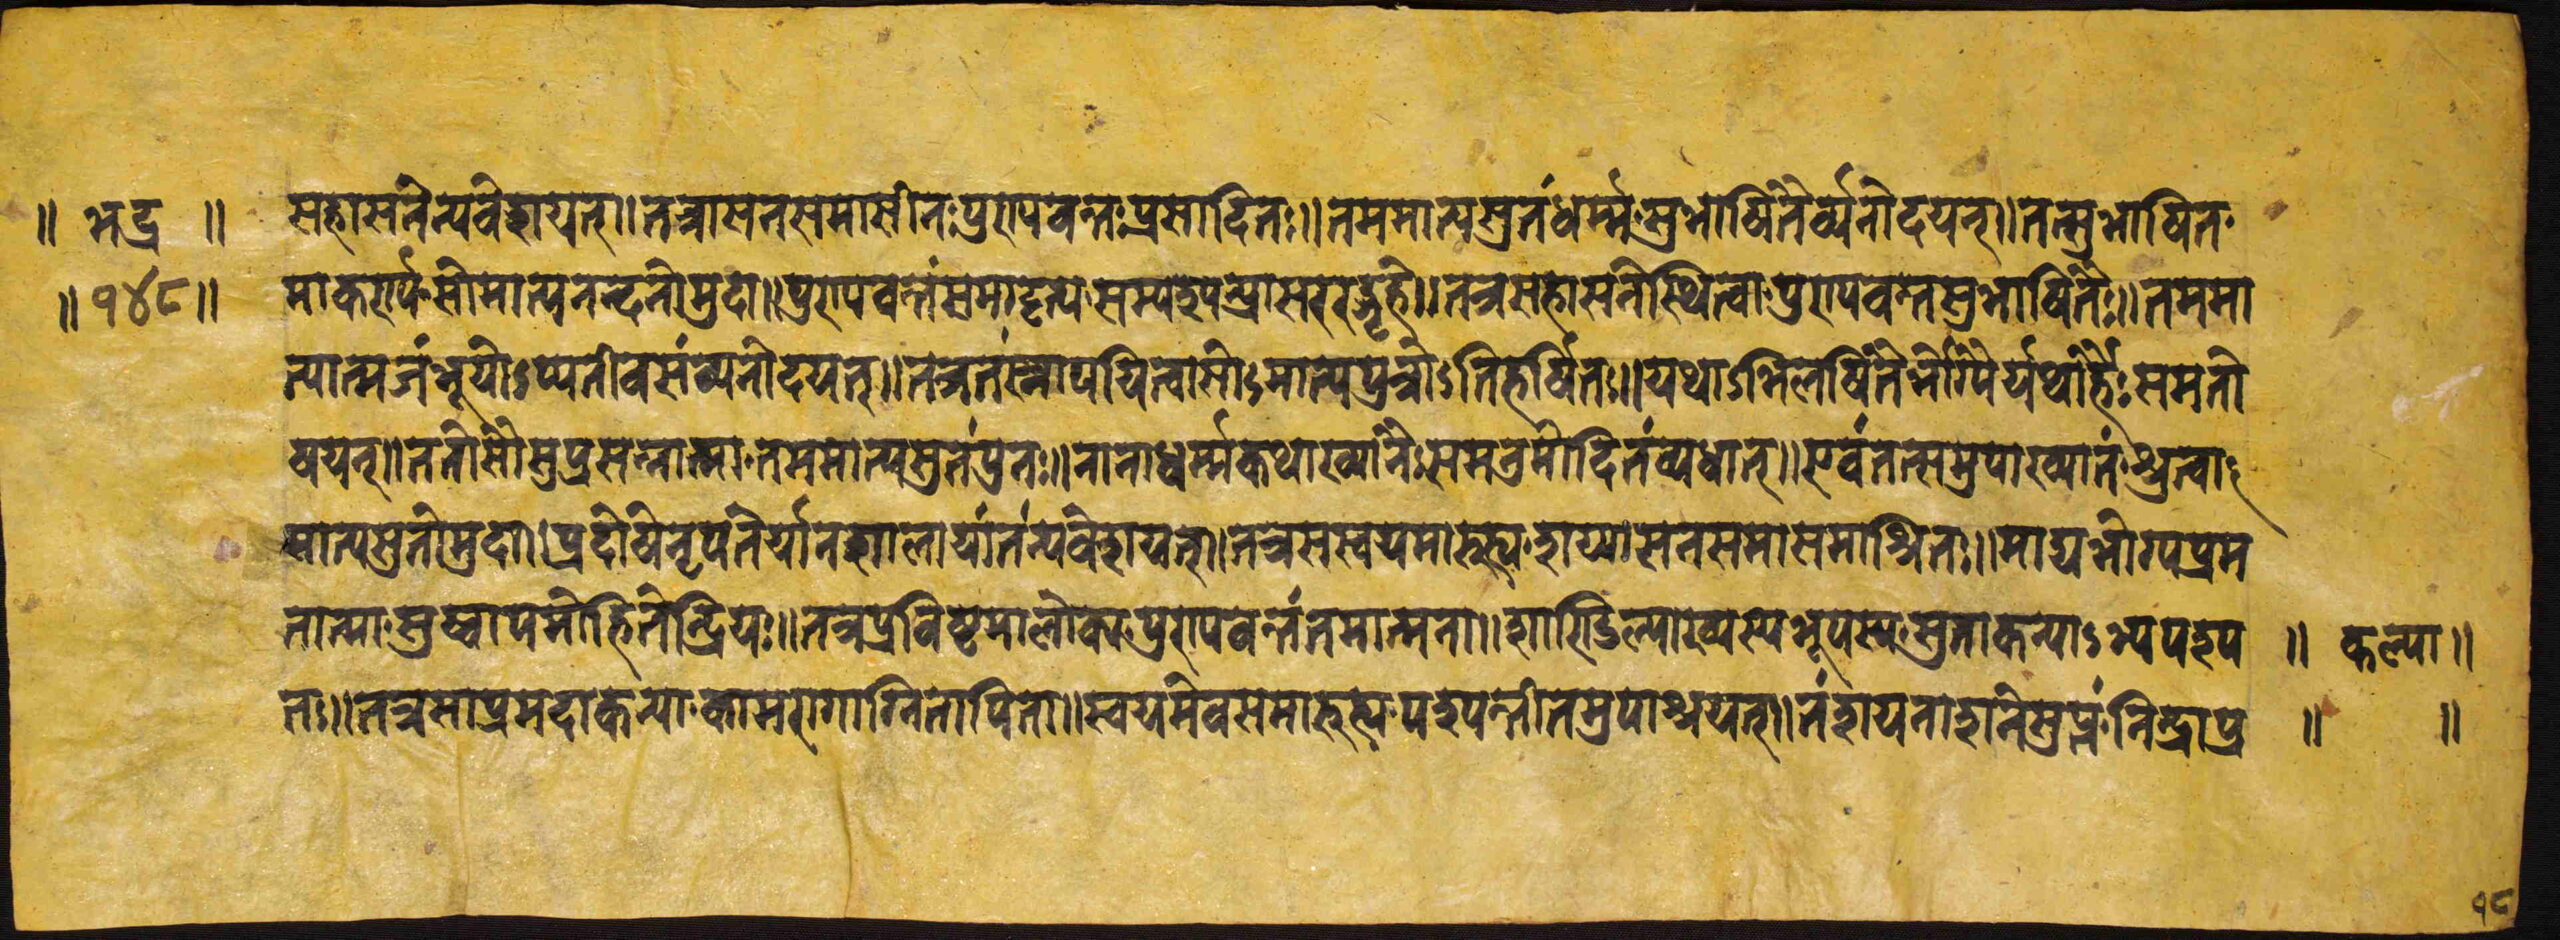 ॥ भद्र ॥ सहासने न्यवेशयत्॥ तत्रासनसमासीनः पुरोपवन्तः प्रसादितः॥ तममात्यसुतं धर्म्मसुभाषितैर्व्यनोदयत्॥ तत्सुभाषित
॥ १४८ ॥ माकर्ण्य सोमात्यनन्दनो मुदा॥ पुरोपवन्तं समादृत्य सम्पश्यन्प्रासरद्गृहे॥ तत्र सहासने स्थित्वा पुरोपवन्तसुभाषितैः॥ तममा
त्यात्मजं भूयोऽप्यतीव संव्यनोदयत्॥ तत्र तं स्नापयित्वासोऽमात्यपुत्रोऽतिहर्षितः॥ यथाऽभिलषितैर्भोग्यैर्यथार्हैः समतो
षयत्॥ ततोसौ सुप्रसन्नात्मा तममात्यसुतं पुनः॥ नानाधर्म्मकथाख्यानैः समनुमोदितं व्यधात्॥ एवं तत्समुपाख्यानं श्रुत्वाऽ
मात्यसुतो मुदा॥ प्रदोषे नृपतेर्यानशालायां तं न्यवेशयत्॥ तत्र स स्वयमारुह्य शय्यासनसमासमाश्रितः॥ माद्यभोग्यप्रम
तात्मा सुष्वाप मोहितेन्द्रियः॥ तत्र प्रविष्टमालोक्य पुरोपवन्तं तमात्मना॥ शाण्डिल्याख्यस्य भूपस्य सुता कन्याऽभ्यपश्यप ॥ कल्पा ॥
तः॥ तत्र सा प्रमदा कन्या कामरागाग्नितापिता॥ स्वयमेव समारुह्य पश्यन्ती तमुपाश्रयत्॥ तं शयनाशने सुप्तं निद्राप्र ॥ ॥
१८